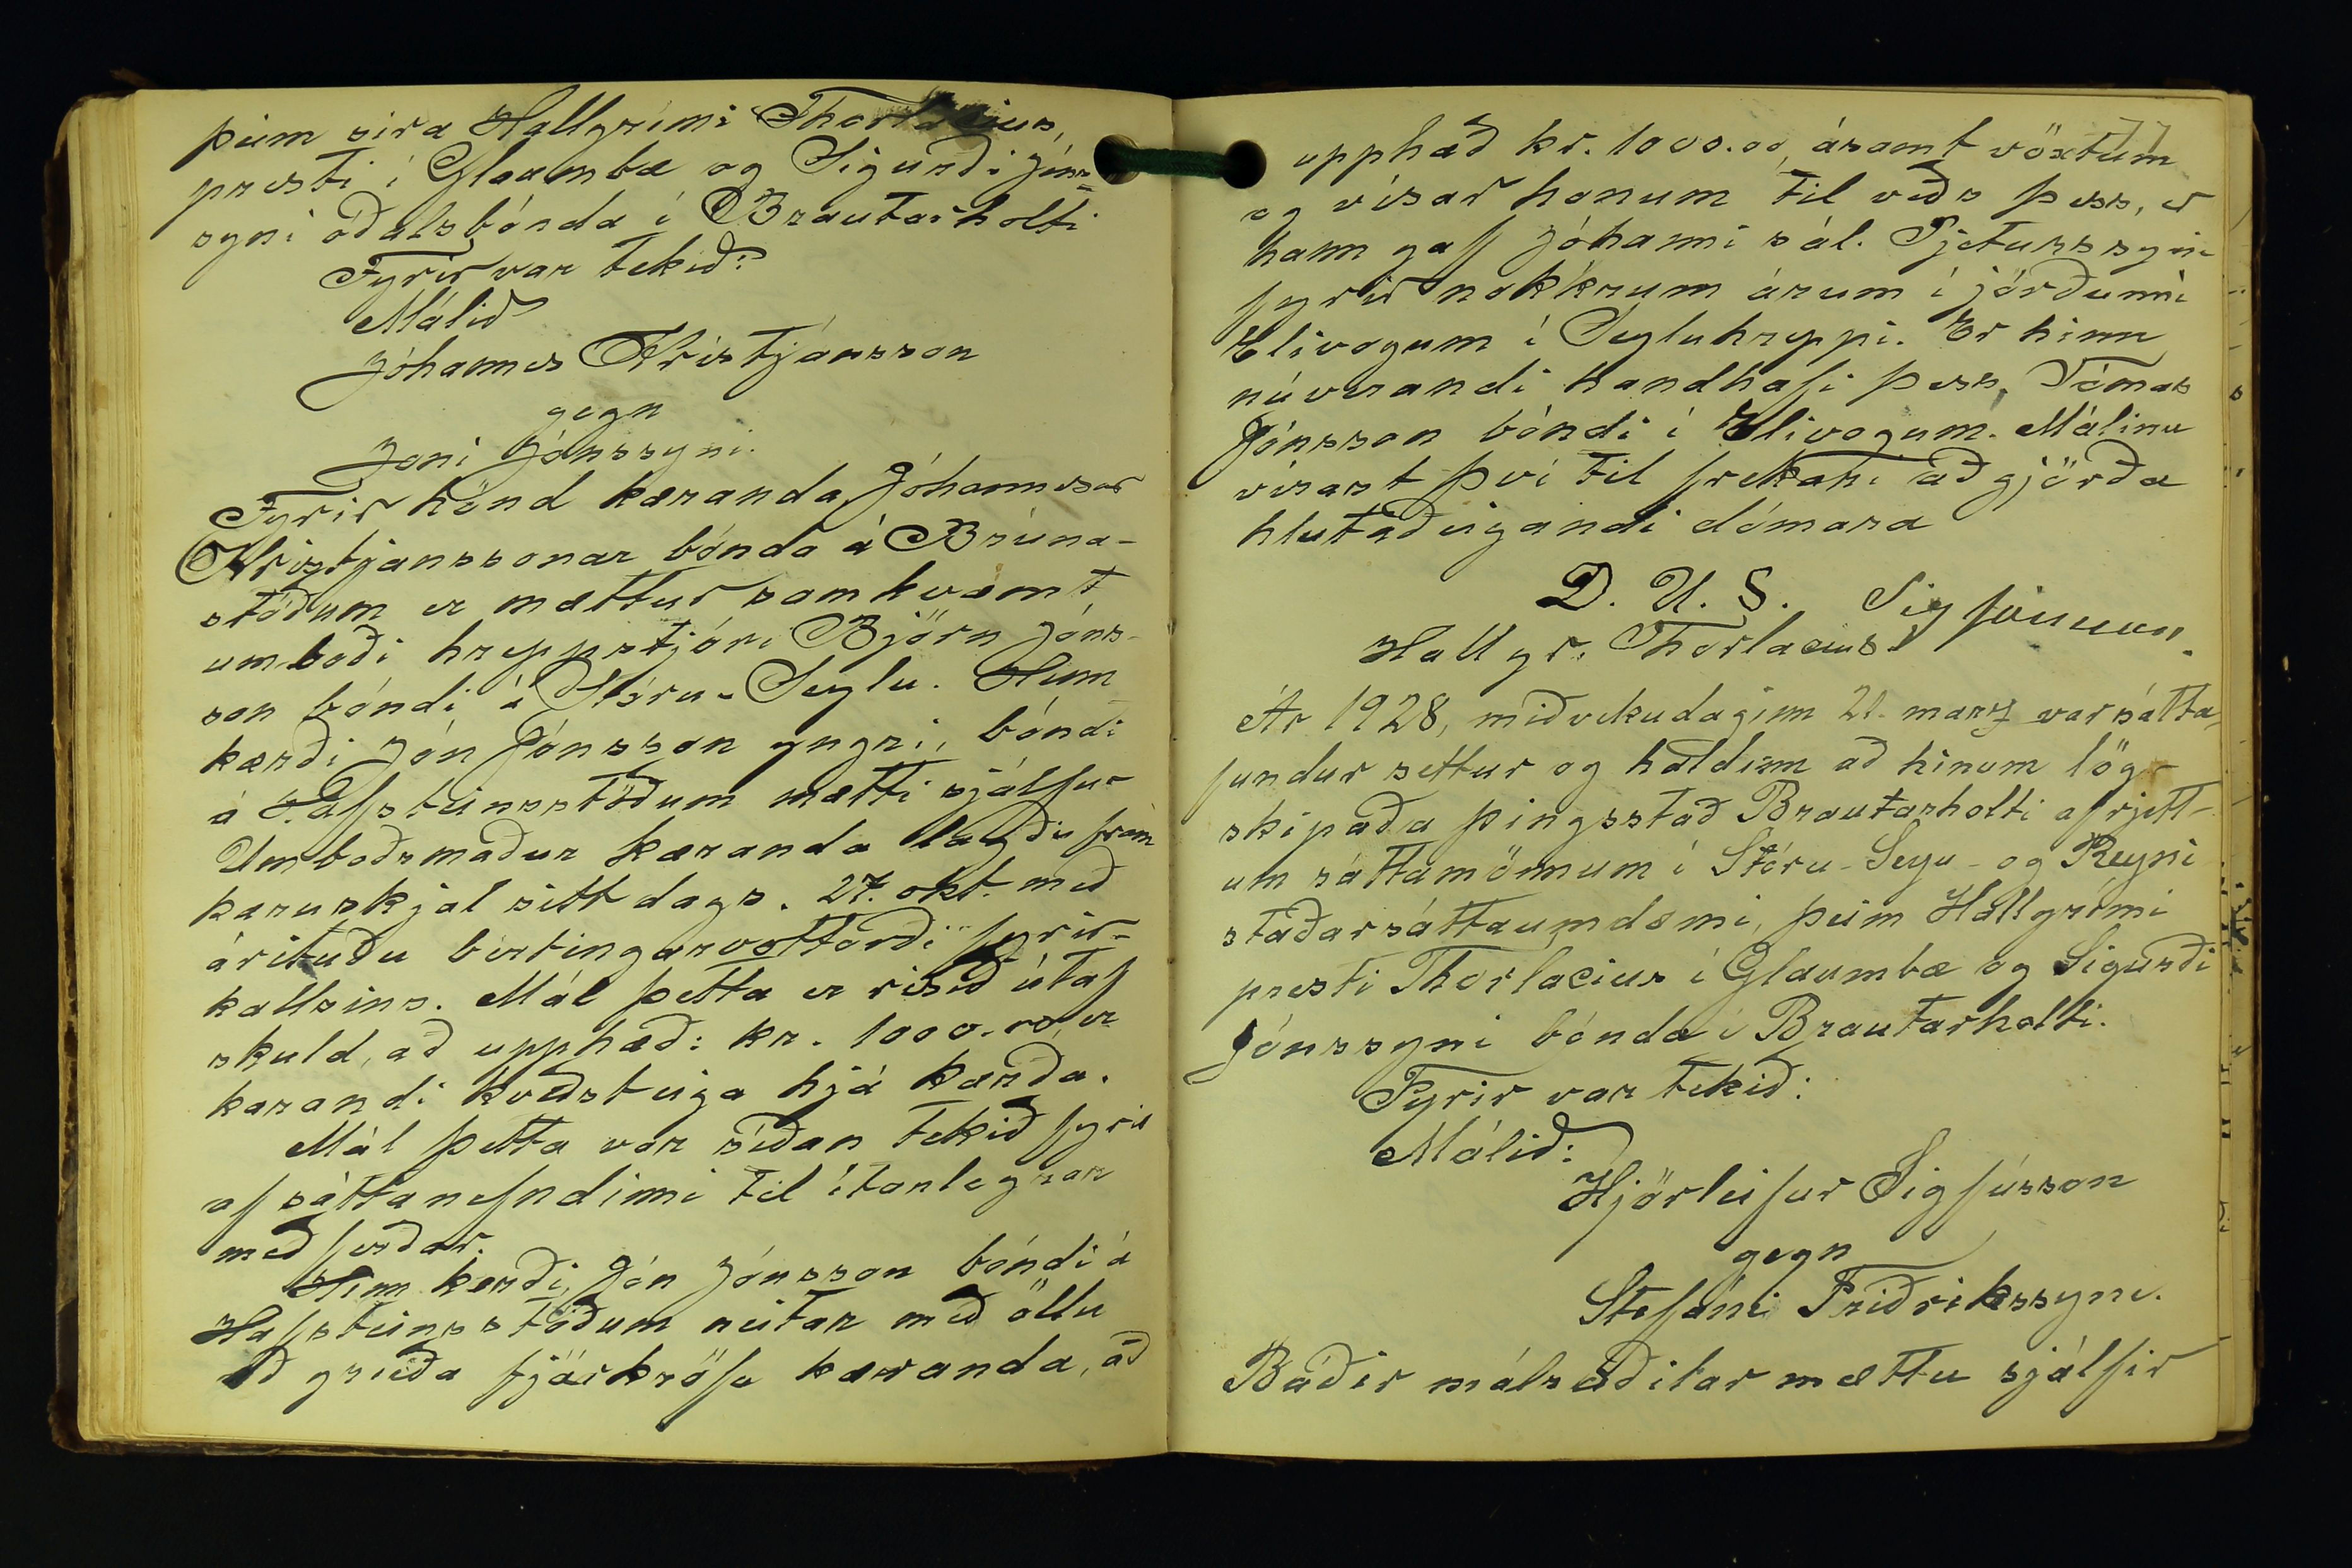 þeim síra Hallgrími Thorlacius,
presti í Glaumbæ og Sigurði Jóns-
syni óðalsbónda í Brautarholti
Fyrir var tekið:
Málið
Jóhannes Kristjánsson
gegn
Jóni Jónssyni.
Fyrir hönd kæranda Jóhannesar
Kristjánssonar bónda á Brúna-
stöðum er mættur samkvæmt
umboði hreppstjóri Björn Jóns-
son bóndi á Stóru-Seylu. Hinn
kærði Jón Jónsson yngri, bóndi
á Hafsteinsstöðum mætti sjálfur
Umboðsmaður kæranda lagði fram
kæruskjal sitt dags. 27. okt. með
árituðu birtingarvottorði fyrir-
kallsins. Mál þetta er risið útaf
skuld, að upphæð: kr. 1000.00, er
kærandi kveðst eiga hjá kærða.
Mál þetta var síðan tekið fyrir
af sáttanefndinni til ítarlegrar
meðferðar.
Hinn kærði, Jón Jónsson bóndi á
Hafsteinsstöðum neitar með öllu
að greiða fjárkröfu kæranda, að
77
upphæð kr. 1000.00, ásamt vöxtum
og vísar honum til veðs þess, er
hann gaf Jóhanni sál. Pjeturssyni
fyrir nokkrum árum í jörðunni
Elivogum í Seyluhreppi. Er hinn
núverandi handhafi þess, Tómas
Jónsson bóndi í Elivogum. Málinu
vísast því til frekari aðgjörða
hlutaðeigandi dómara
D. U. S. Sig Jónsson.
Hallgr. Thorlacius
Ár 1928, miðvikudaginn 21. marz var sátta-
fundur settur og haldinn að hinum lög-
skipaða þingsstað Brautarholti af rjett-
um sáttamönnum í Stóru-Seyu- og Reyni
staðarsáttaumdæmi, þeim Hallgrími
presti Thorlacius í Glaumbæ og Sigurði
Jónssyni bónda í Brautarholti.
Fyrir var tekið:
Málið:
Hjörleifur Sigfússon
gegn
Stefáni Friðrikssyni.
Báðir málsaðilar mættu sjálfir